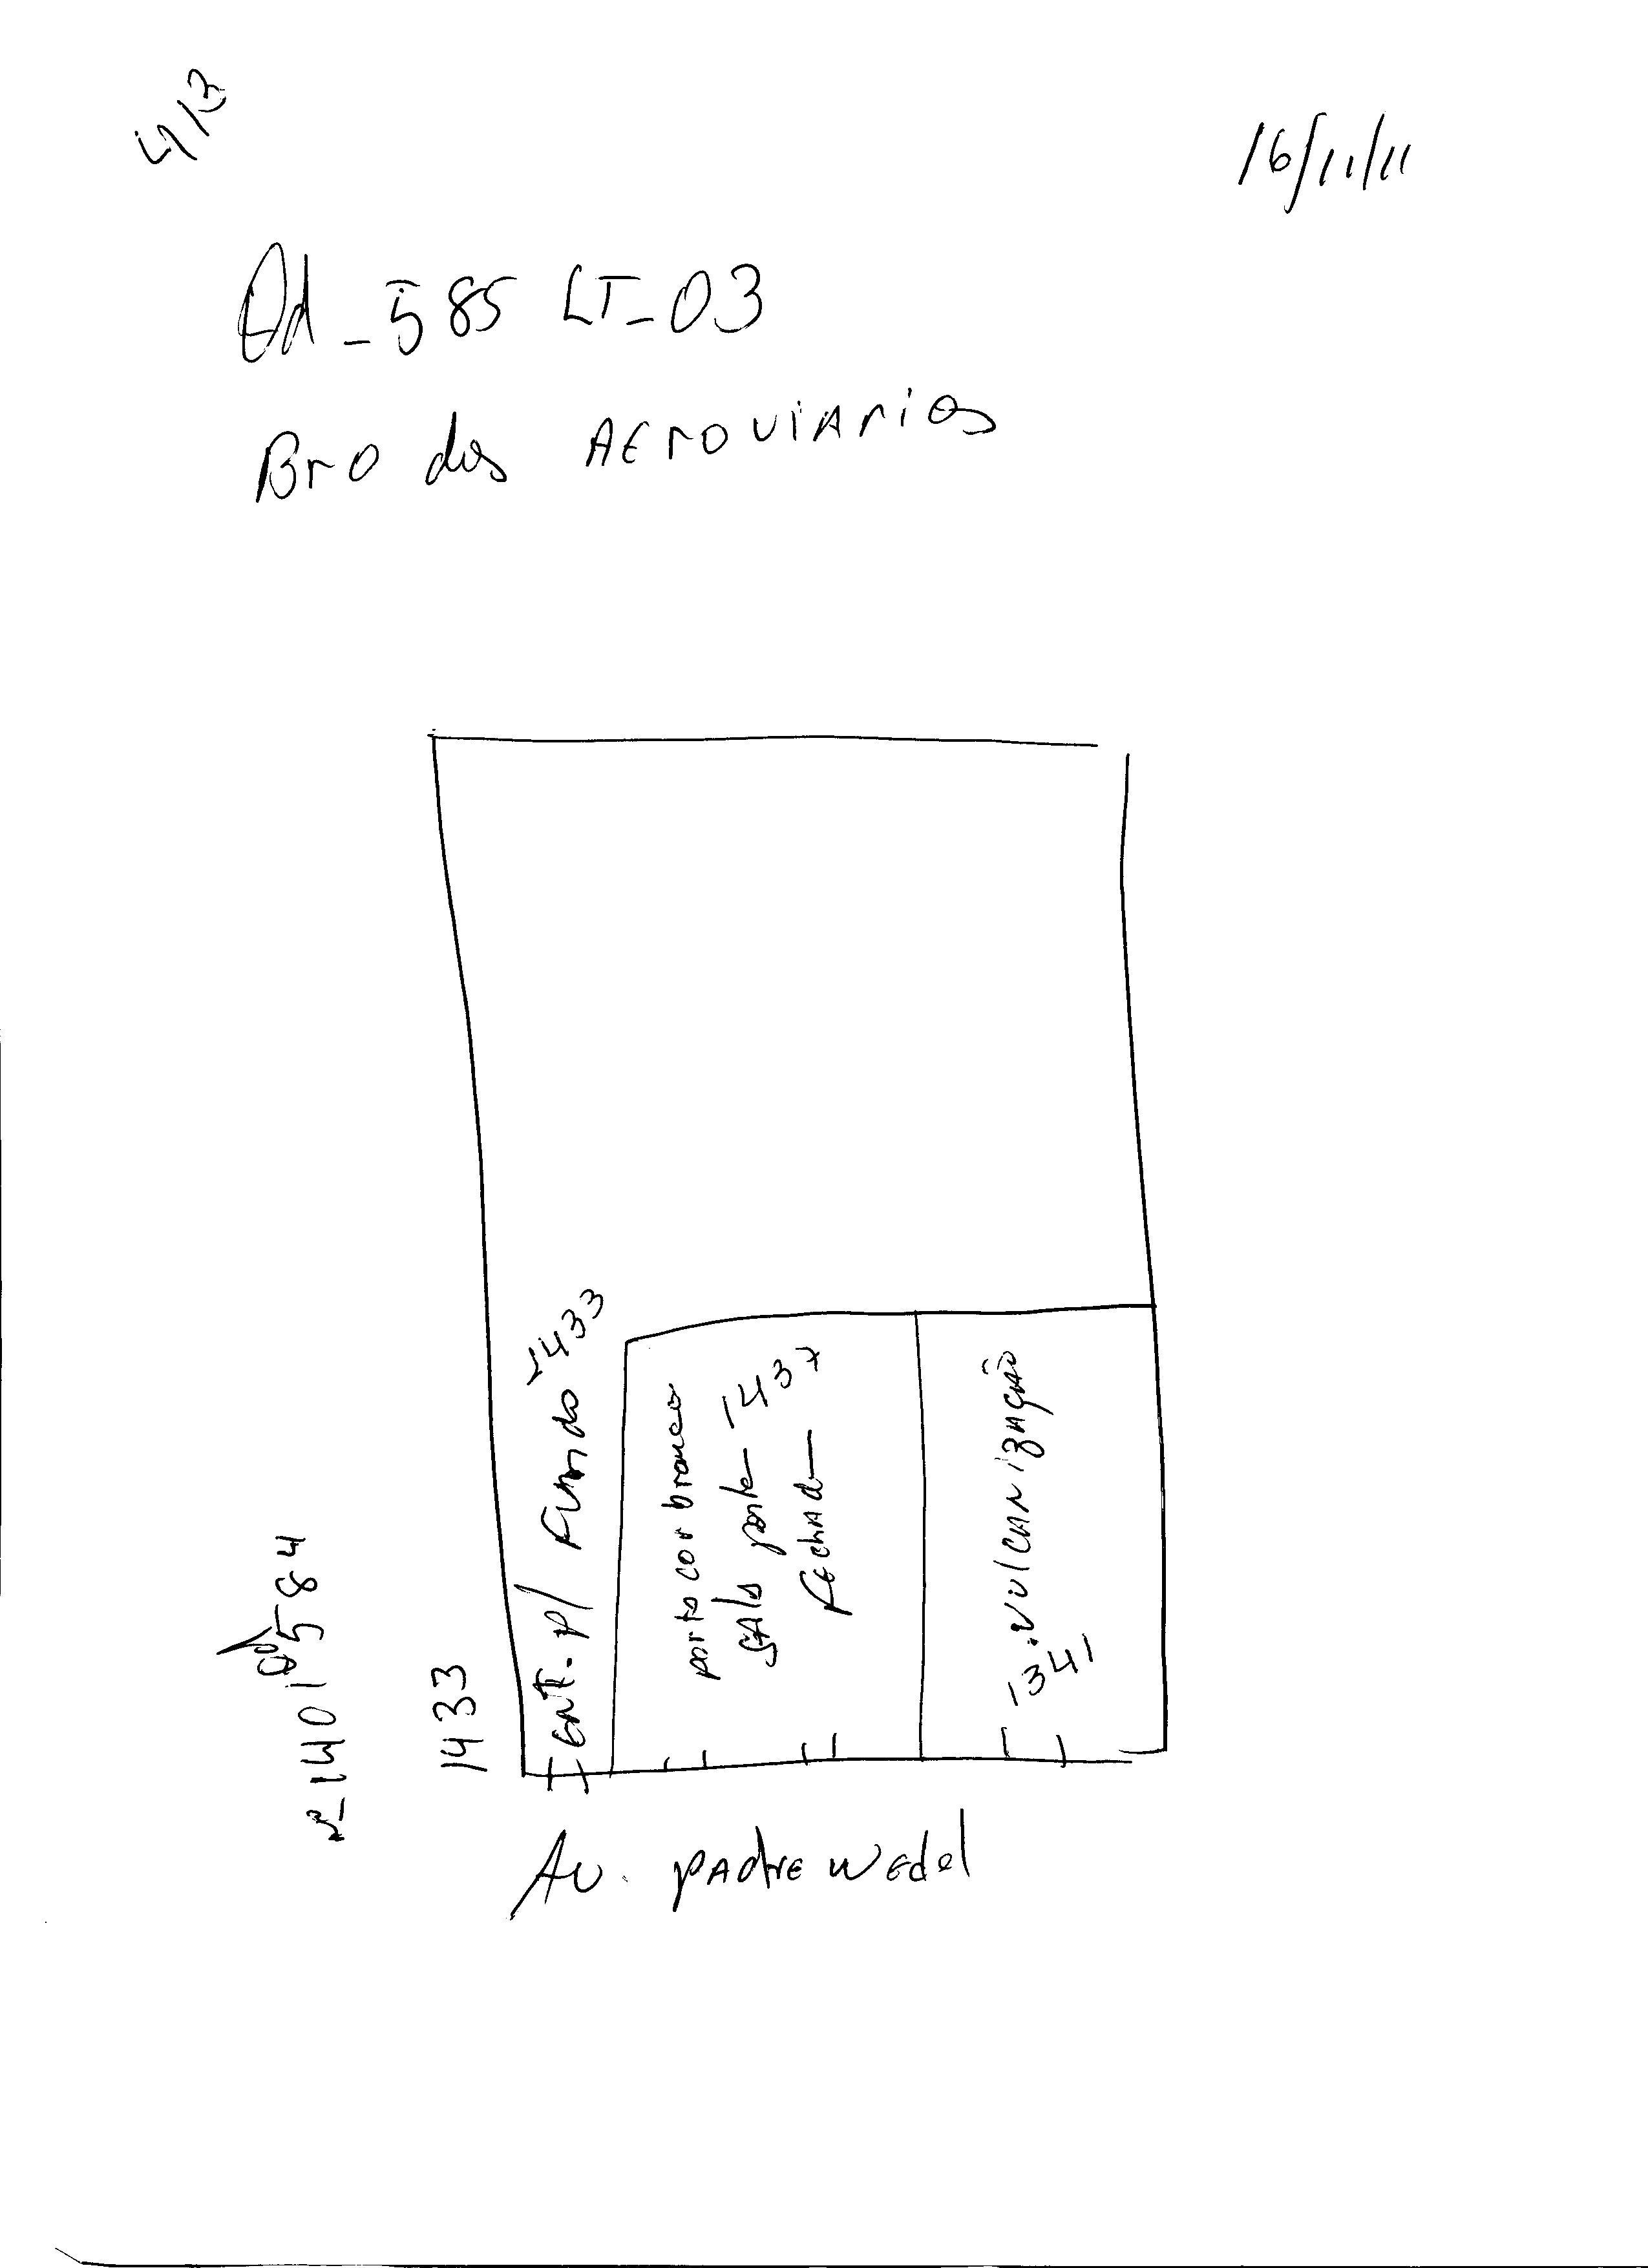 413
16/11/11
Qd - 585 LT - 03
Bro dos AEroviArios
1433
Ent. p/ Fundo
porto cor branco
sAlA porta 1437
fechAdA
vulcanizAção
1341
1433
nº 1401 Qd 584
Av. pAdre WEdel